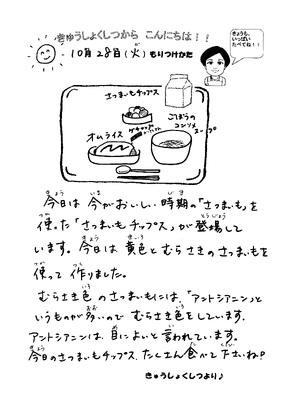 きゅうしょくしつから こんにちは！！
10月28日(火) もりつけかた
きょうも、
いっぱい
たべてね！！
さつまいもチップス
ごぼうの
コンソメ
スープ
オムライス
ケチャップ
今日は 今がおいしい 時期の「さつまいも」を
使った「さつまいもチップス」が登場して
います。今日は 黄色と むらさきの さつまいもを
使って 作りました。
むらさき色 の さつまいもには、「アントシアニン」と
いうものが 多いので むらさき色を しています。
アントシアニンは、目によいと 言われています。
今日のさつまいもチップス、たくさん食べて 下さいね♡
きゅうしょくしつより♪